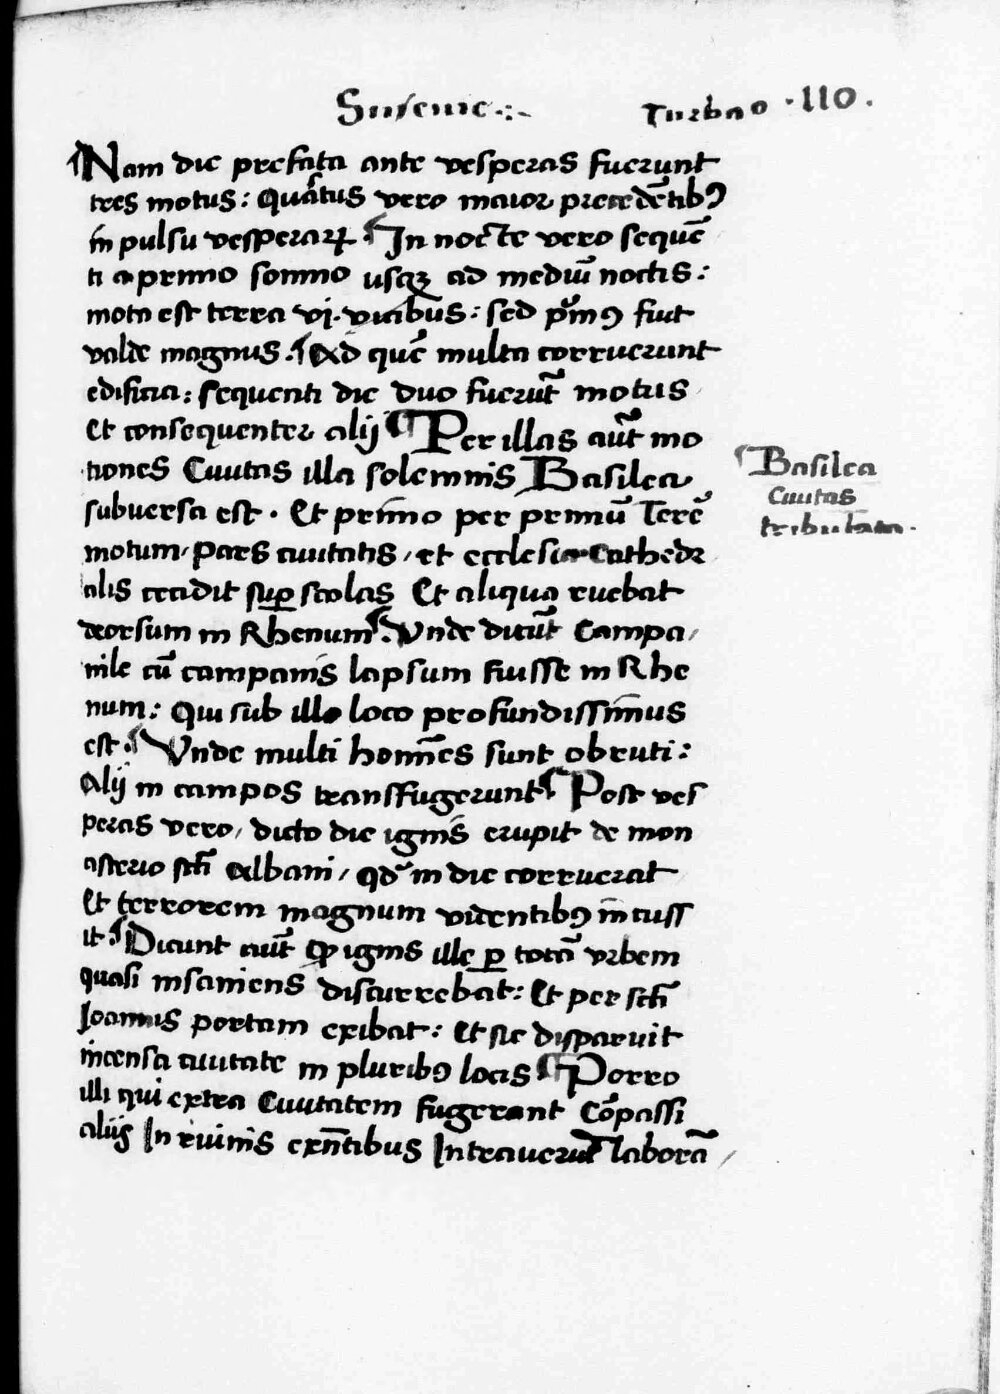 Sinsenie.:.
Turbao .110.
¶Nam die prefata ante vesperas fuerunt
tres motus: Quãtus vero maior precedẽtibꝰ
in pulsu vesperaꝝ. ¶In nocte vero sequẽ
ti a primo somno usqꝫ ad mediũ noctis:
mota est terra vj. vicibus: sed pͥmꝰ fuit
valde magnus. ¶Ad quẽ multa corruerunt
edificia: sequenti die duo fuerũt motus
et consequenter alij ¶Per illas aũt mo
tiones Civitas illa solemnis Basilea
subversa est. Et primo per primũ Terrẽ
motum, pars civitatis, et ecclesia Cathedr
alis cecidit suꝑ scolas Et aliqua ruebat
deorsum in Rhenum ¶. Unde dicũt Campa,
nile cũ campanis lapsum fuisse in Rhe
num: Qui sub illo loco profundissimus
est. ¶Unde multi homĩes sunt obruti:
Alij in campos transfugerunt ¶ Post ves
peras vero, dicto die ignis erupit de mon
asterio scti Albani, qď in die corruerat
Et terrorem magnum videntibꝰ incuss
it. ¶Dicunt aũt ꝙ ignis ille ꝑ totã urbem
quasi insaniens discurrebat: Et per scti
Joannis portam exibat: et sic disparuit
incensa civitate in pluribꝰ locis ¶Porro
illi qui extra Civitatem fugerant Cõpassi
aliis In ruinis exñtibus Intraverũt laborã,
¶Basilea
Civitas
tribulata.